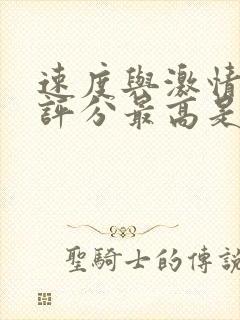 速度與激情
評分最高是
聖騎士的傳說